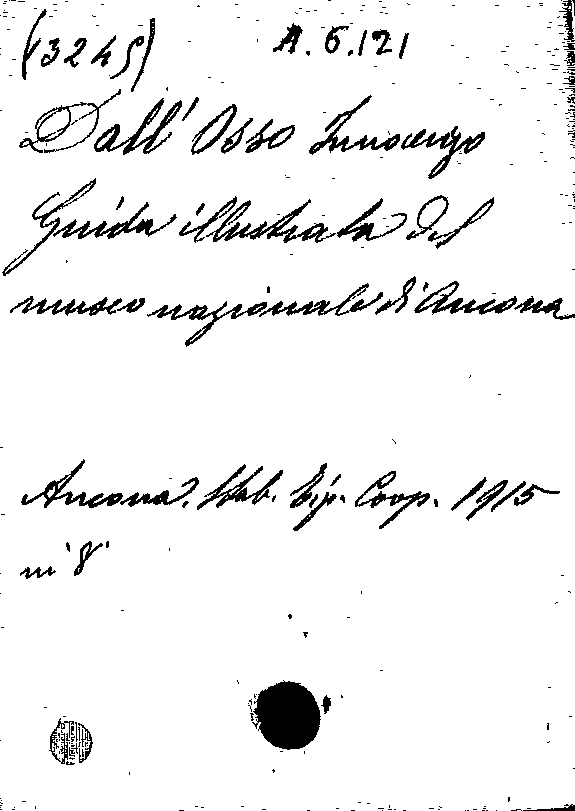 (3245) A. 5.121
Dall' Osso Innocenzo
Guida illustrata del
museo nazionale di Ancona
Ancona. Stab. Tip. Coop. 1915
in 8°